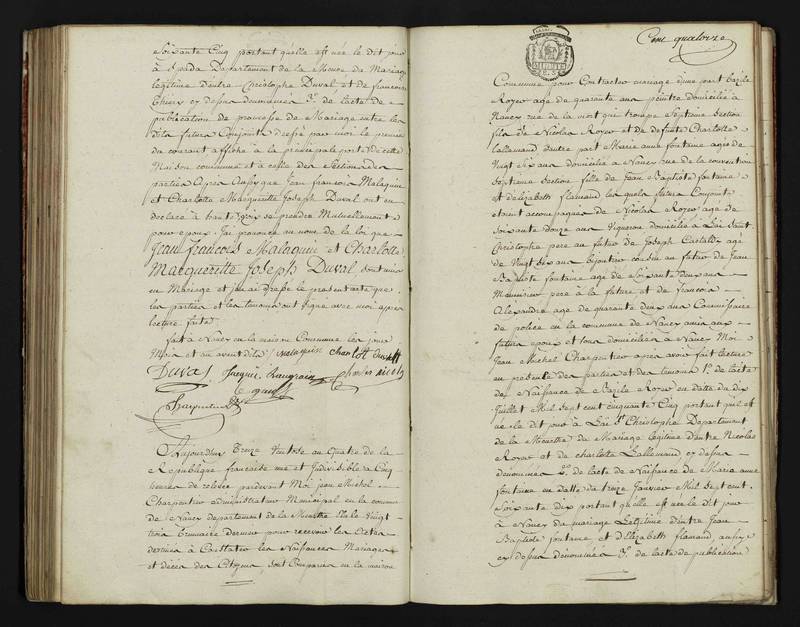 Soixante Cinq portant quelle est née le dit jour
à Departement de la Meuse du Mariage
légitime d'entre Christophe Duval et de francoise
Thiery cy dessus denommés 3°. de l'acte de
publication de promesse de Mariage entre les
dits futurs Conjoints dressé par moi le premier
du courant affiché à la principale porte de cette
Maison commune et à celle des Sections des
parties Apres Aussy que Jean francois Malaquin
et Charlotte Marguerite Joseph Duval ont eu
declaré à haute voix se prendre Mutuellement
pour epoux J'ai prononcé au nom de la loi que
Jean francois Malaquin et Charlotte
Marguerite Joseph Duval sont unis
en Mariage et j'ai redigé le present acte que
les parties et les temoins ont signé avec moi apres
lecture faite
fait à Nancy en la maison Commune les jour
Mois et an avant dits Malaquin charlott
Duval
Charpentier
Aujourdhui Treize Ventose an Quatre de la
Republique francaise une et Indivisible a Cinq
heures de relevée pardevant Moi jean Michel
Charpentier administrateur Municipal en la commune
de Nancy departement de la Meurthe Elu le vingt
trois Brumaire dernier pour recevoir les Actes
destinés à Constater les Naissances Mariages
et décès des Citoyens sont Comparus en la maison
Cent quatorze
Commune pour Contracter mariage d'une part Bazile
Royer agé de quarante ans peintre domicilié à
Nancy rue de la vertu que troupe Septieme Section
fils de Nicolas Royer et de defunte Charlotte
Lallemand d'autre part Marie anne fontaine agée de
Vingt Six ans domiciliée à Nancy rue de la convention
Septieme Section fille de Jean Baptiste fontaine
et d'elizabeth flamand les quels futurs Conjoints
etant accompagnés de Nicolas Royer agé de
soixante douze ans Vigneron domicilié à Lai Saint
Christophe pere au futur de Joseph agé
de Vingt six ans bijoutier cousin au futur de Jean
Baptiste fontaine agé de Soixante deux ans
pere à la future et de francois
Alexandre agé de quarante deux ans Commissaire
de police en la commune de Nancy amis aux
futurs epoux et tous domiciliés à Nancy Moi
Jean Michel Charpentier apres avoir fait lecture
en presence des parties et des temoins 1°. de l'acte
de Naissance de Bazile Royer en datte du dix
Juillet Mil Sept cent cinquante Cinq portant qu'il est
né le dit jour à Lai St Christophe Departement
de la Meurthe du Mariage légitime d'entre Nicolas
Royer et de charlotte Lallemand cy dessus
denommés 2°. de l'acte de Naissance de Marie anne
fontaine en datte du treize Janvier Mil Sept cent
Soixante dix portant qu'elle est née le dit jour
à Nancy du mariage Legitime d'entre Jean
Baptiste fontaine et d'Elizabeth flamand aussy
cy dessus denommés 3°. de l'acte de publication